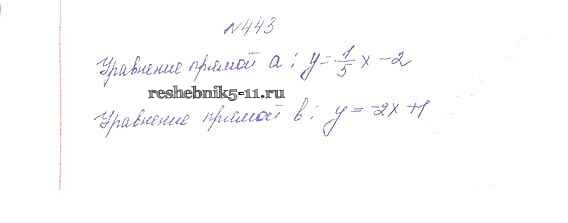 №443
Уравнение прямой a: y = 1/5 x - 2
reshebnik5-11.ru
Уравнение прямой b: y = -2x + 1